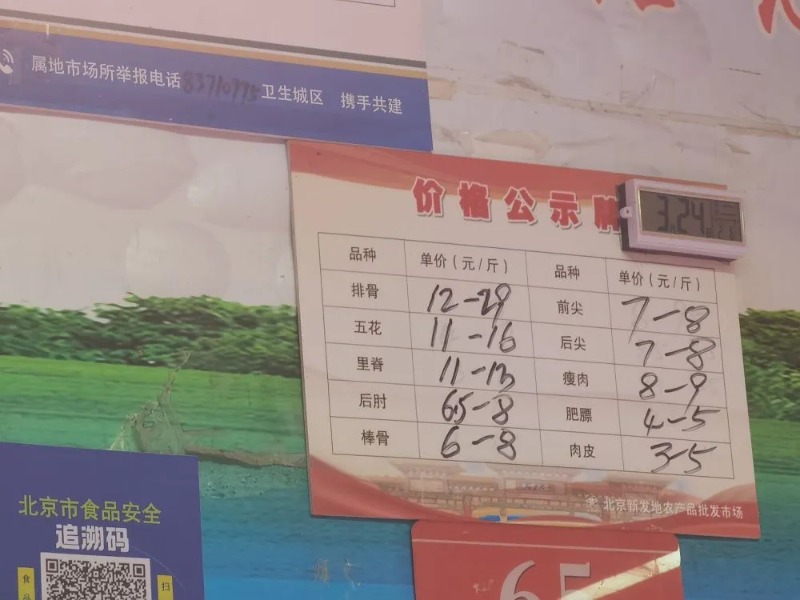 属地市场所举报电话83710775卫生城区 携手共建
价格公示牌
3.24
品种 单价（元/斤） 品种 单价（元/斤）
排骨 12-29 前尖 7-8
五花 11-16 后尖 7-8
里脊 11-13 瘦肉 8-9
后肘 6.5-8 肥膘 4-5
棒骨 6-8 肉皮 3-5
北京新发地农产品批发市场
北京市食品安全
追溯码
食
扫
65